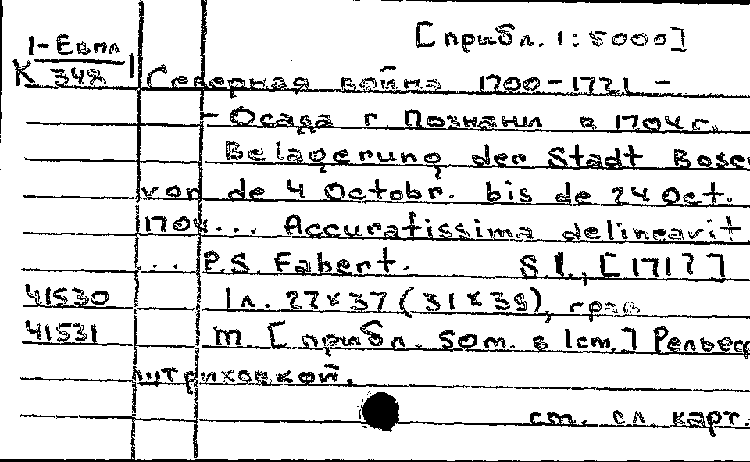 [прибл. 1:5000]
1-Евпл
К 348
Северная война 1700-1721 -
- Осада г Познани в 1704г.
Belagerung der Stadt Bosen
von de 4 Octobr. bis de 24 Oct.
1704... Accuratissima delineavit
... P.S. Fabert. S.l., [171?]
41530 1л. 27×37 (31×39), грав
41531 т. [прибл. 50т. в 1ст.] Рельеф
штриховкой.
ст. сл. карт.